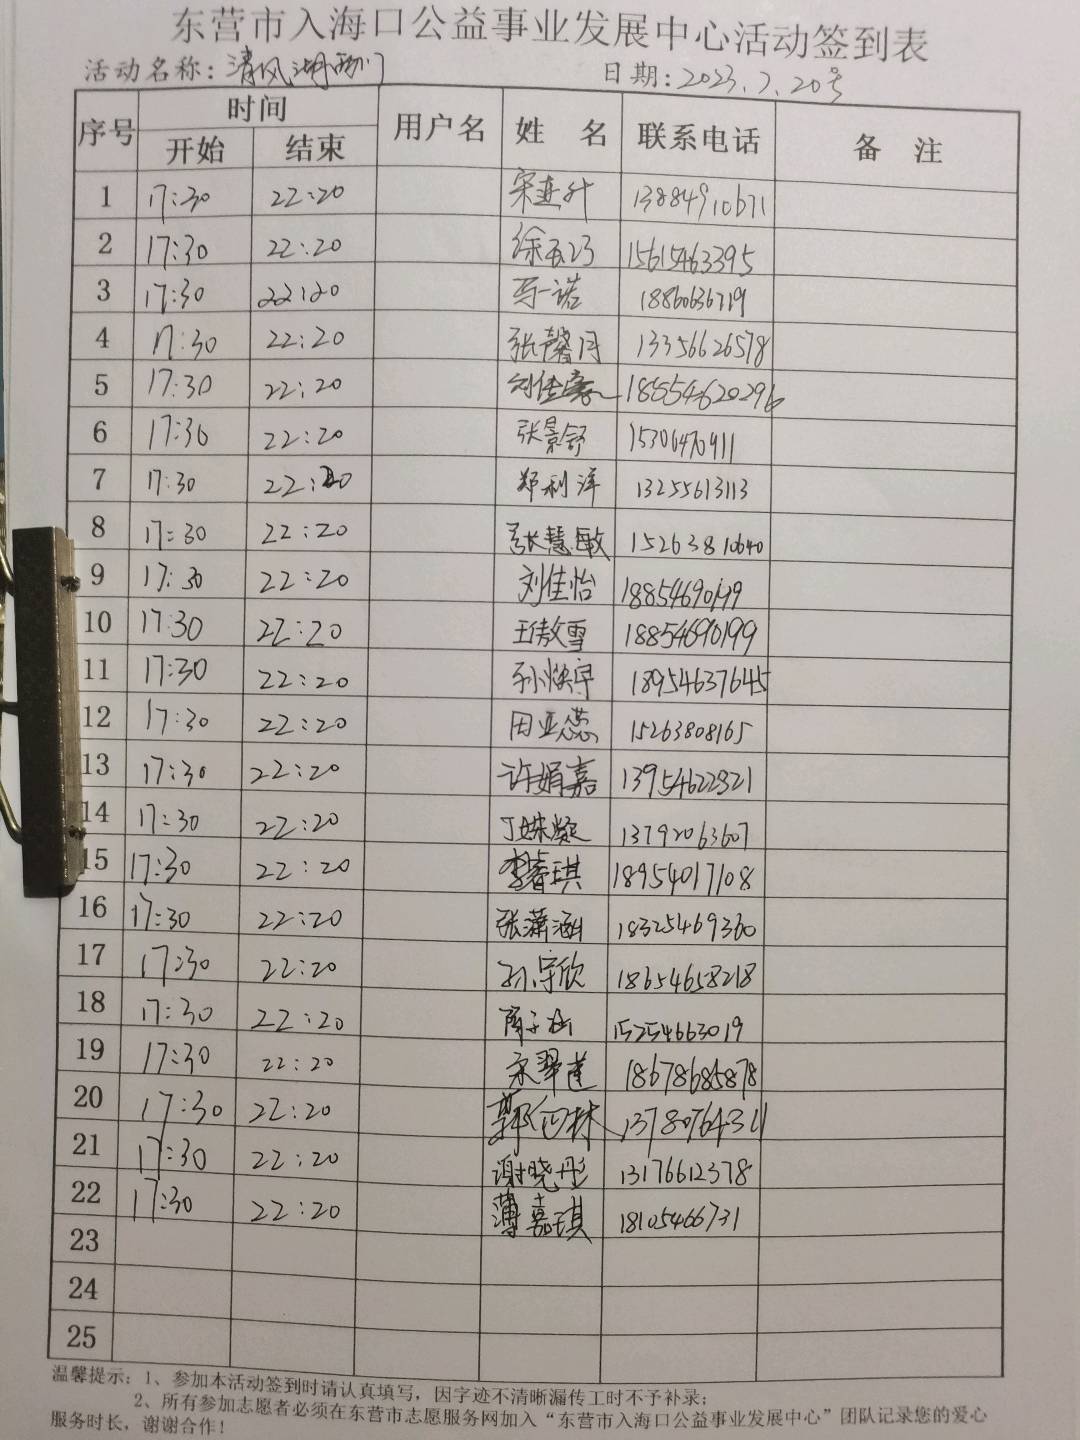 东营市入海口公益事业发展中心活动签到表
活动名称：清风湖西门 日期：2023.7.20号
序号 时间 用户名 姓 名 联系电话 备 注
开始 结束
1 17:30 22:20 13884910671
2 17:30 22:20 15615463395
3 17:30 22:20 一诺 18860636719
4 17:30 22:20 张馨月 13356626578
5 17:30 22:20 刘佳 18554620296
6 17:30 22:20 张景舒 15306470911
7 17:30 22:20 郑利洋 13255613113
8 17:30 22:20 张慧敏 15263810640
9 17:30 22:20 刘佳怡 18854690199
10 17:30 22:20 王傲雪 18854690199
11 17:30 22:20 孙焕宇 18954637645
12 17:30 22:20 田亚蕊 15263808165
13 17:30 22:20 许娟嘉 13954622821
14 17:30 22:20 丁姝凝 13792063607
15 17:30 22:20 李睿琪 18954017108
16 17:30 22:20 张潇涵 18325469360
17 17:30 22:20 孙宇欣 18654658218
18 17:30 22:20 15254663019
19 17:30 22:20 宋翠莲 18678685878
20 17:30 22:20 郭 林 13780764311
21 17:30 22:20 谢晓彤 13176612378
22 17:30 22:20 薄嘉琪 18105466731
23
24
25
温馨提示：1、参加本活动签到时请认真填写，因字迹不清晰漏传工时不予补录；
2、所有参加志愿者必须在东营市志愿服务网加入“东营市入海口公益事业发展中心”团队记录您的爱心
服务时长，谢谢合作！